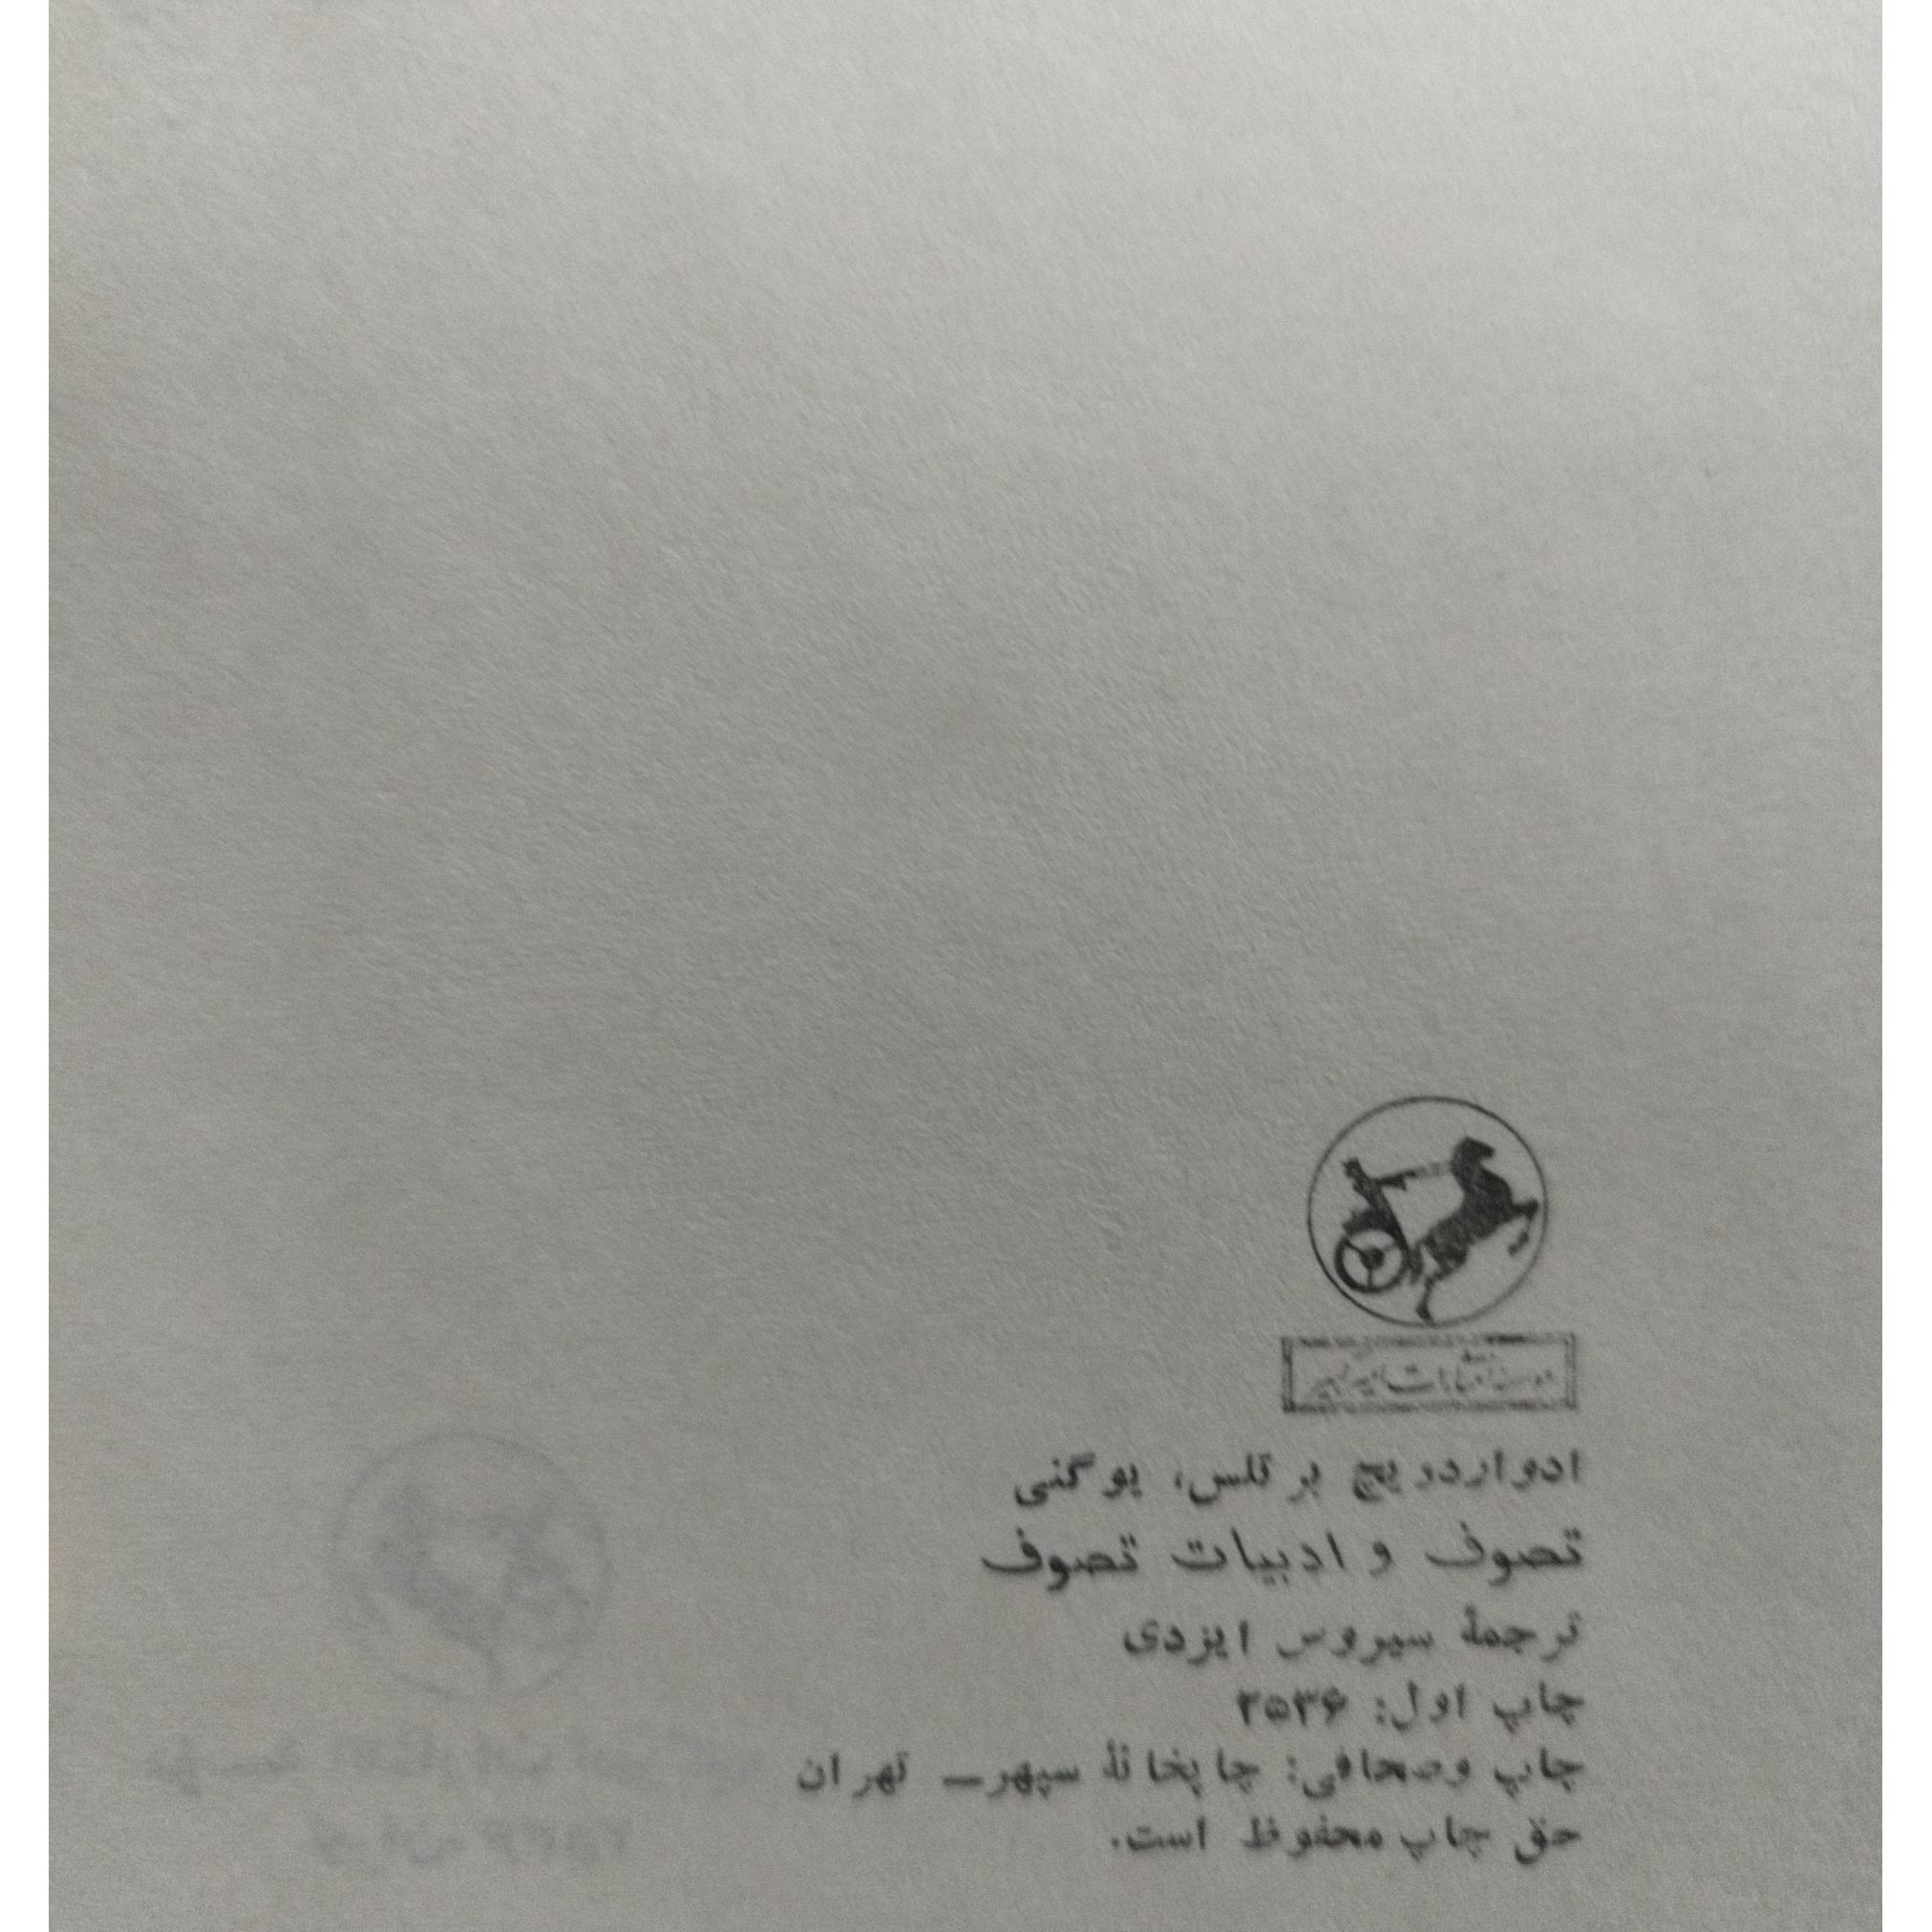 موسسه انتشارات امیرکبیر
ادواردویچ برتلس، یوگنی
تصوف و ادبیات تصوف
ترجمهٔ سیروس ایزدی
چاپ اول: ۲۵۳۶
چاپ وصحافی: چاپخانهٔ سپهر— تهران
حق چاپ محفوظ است.